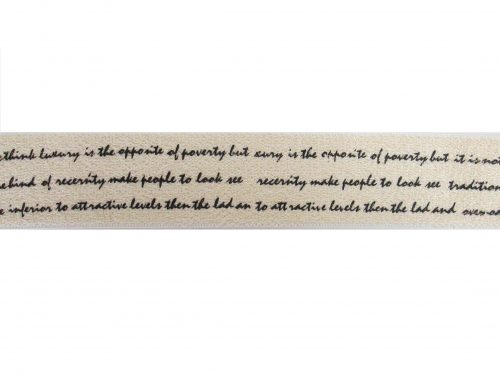 think luxury is the opposite of poverty but xury is the opposite of poverty but it is not
kind of recersity make people to look see recersity make people to look see tradition
e inferior to attractive levels then the lad an to attractive levels then the lad and